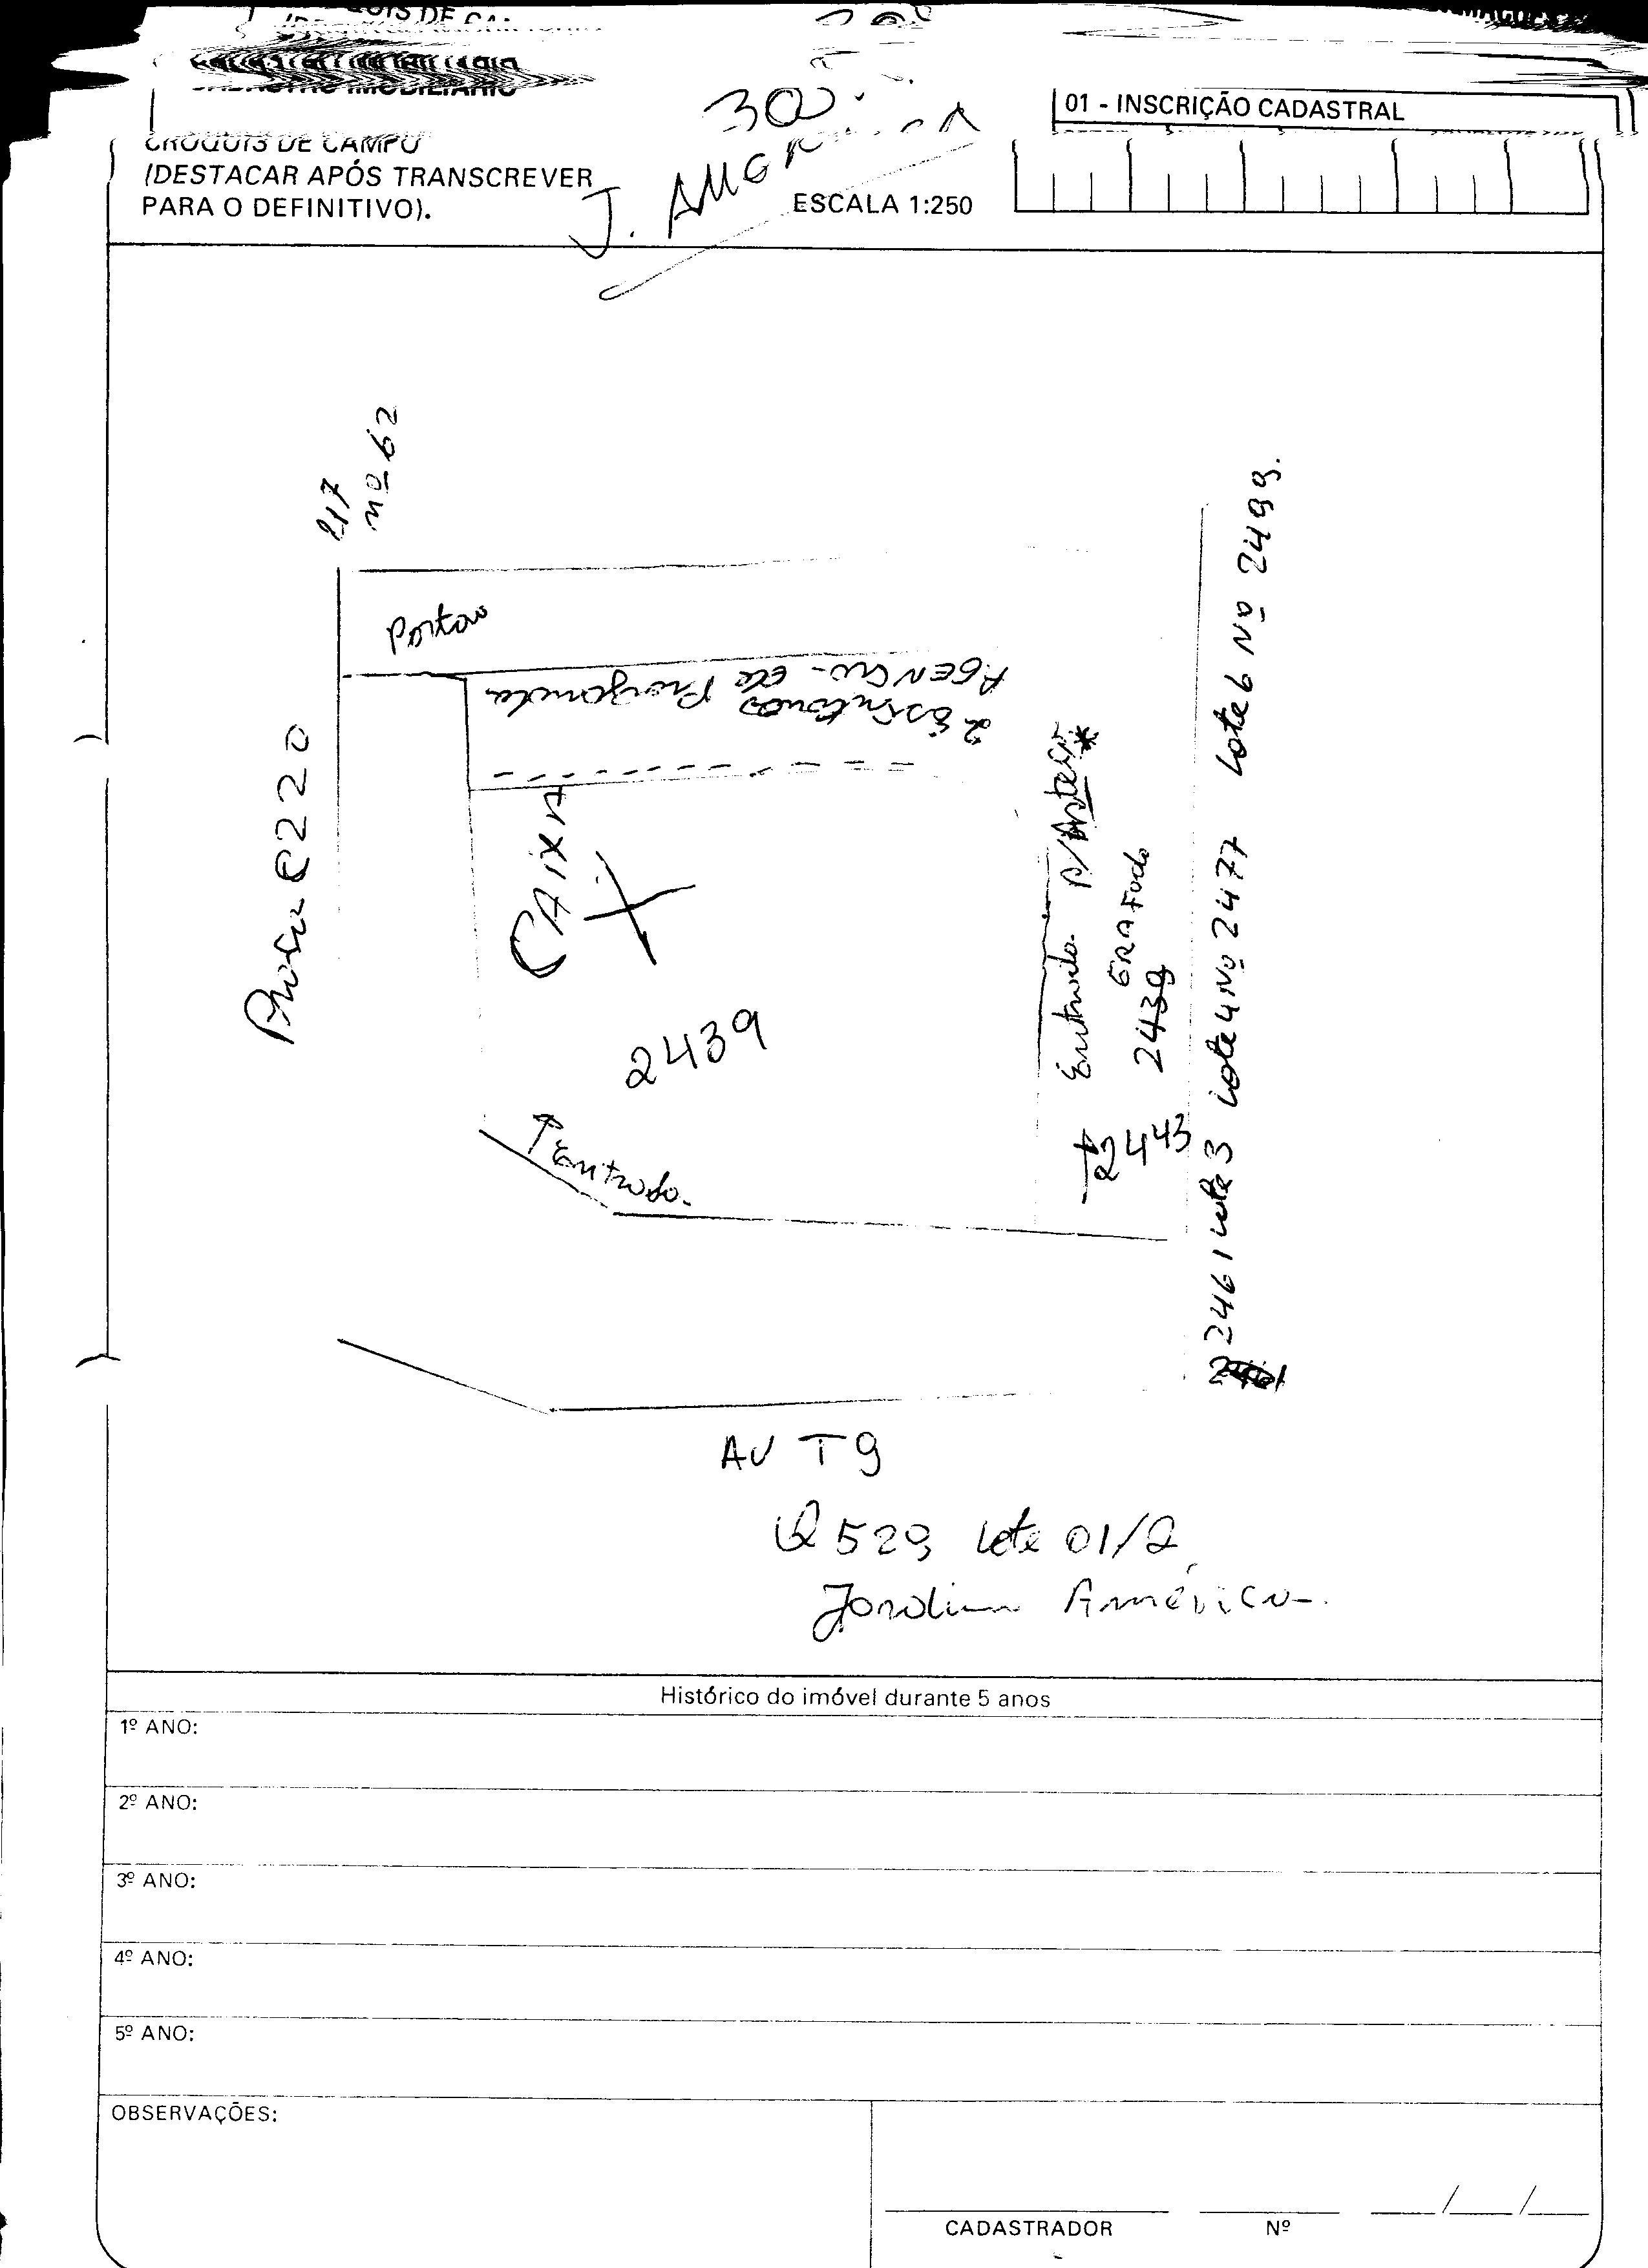 CADASTRO IMOBILIÁRIO
CROQUIS DE CAMPO
(DESTACAR APÓS TRANSCREVER
PARA O DEFINITIVO).
30
J. AMERICA
ESCALA 1:250
01 - INSCRIÇÃO CADASTRAL
217
nº 62
Portão
AGENCIA de Propaganda
2 Escritorios
C220
CAIXA
2439
↑ Entrada
Entrada P/
ERA Fundo
2439
2443
2461 Lote 3 Lote 4 Nº 2477 Lote 6 Nº 2499.
AV T9
Q 529 Lote 01/2
Jardim América
Histórico do imóvel durante 5 anos
1º ANO:
2º ANO:
3º ANO:
4º ANO:
5º ANO:
OBSERVAÇÕES:
CADASTRADOR
Nº